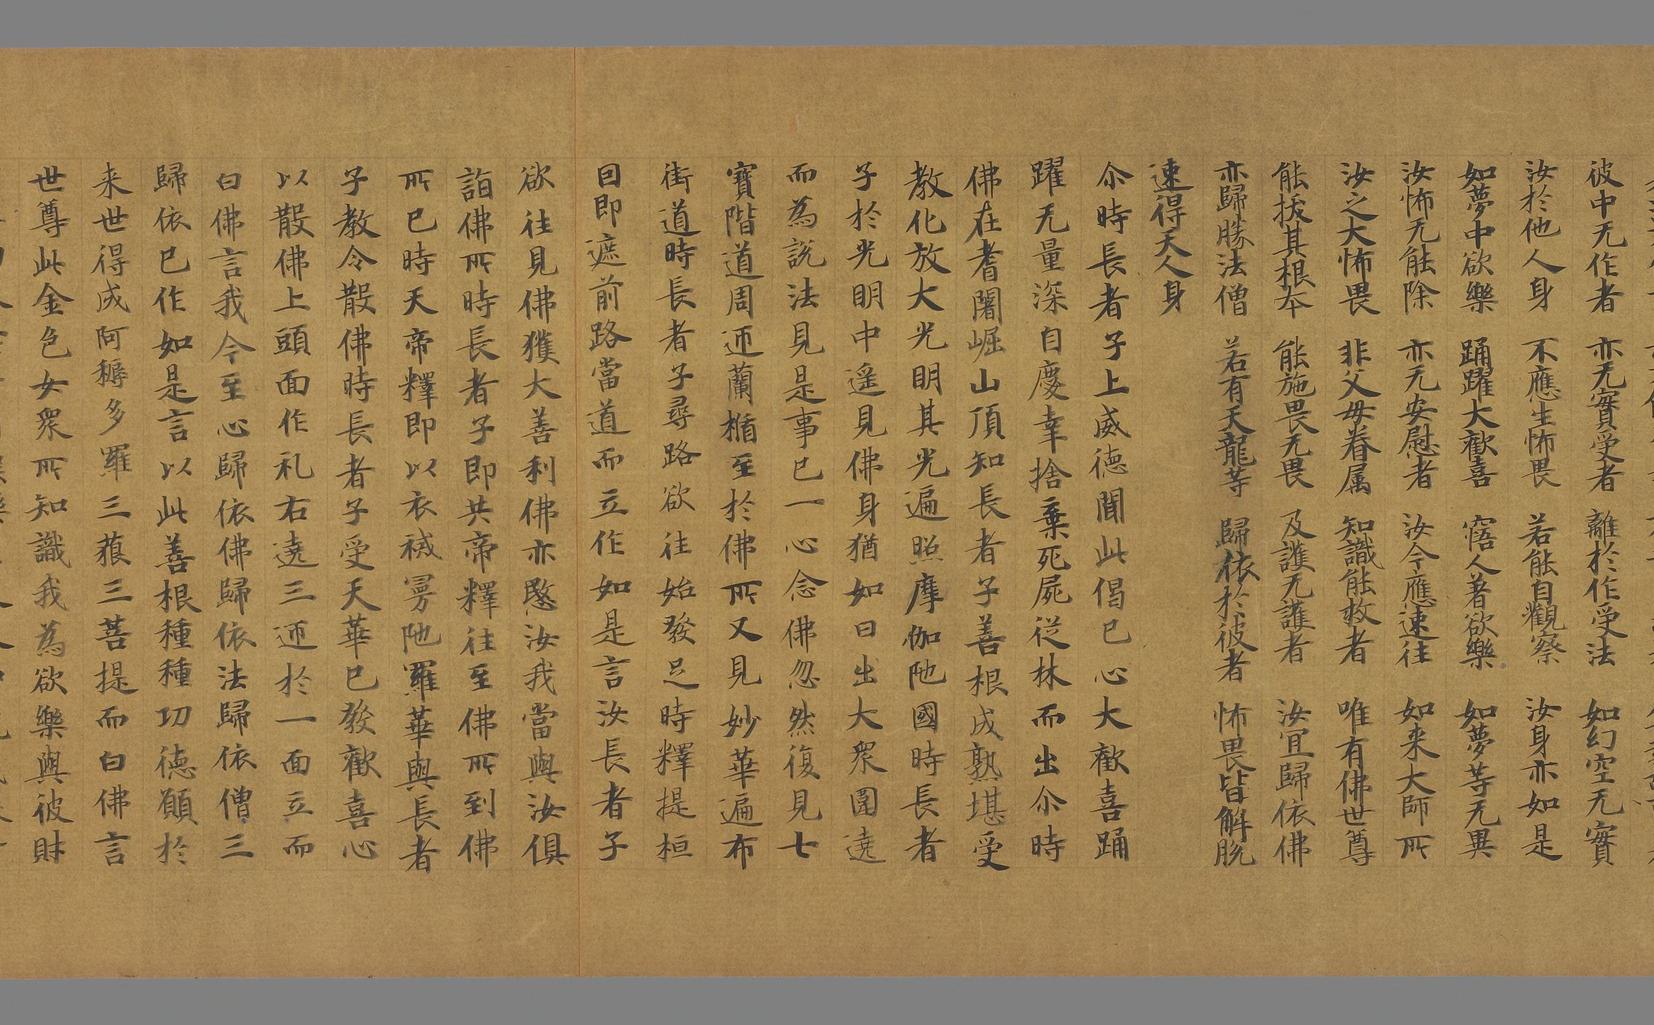 彼中无作者 亦无實受者 離於作受法 如幻空无實
汝於他人身 不應生怖畏 若能自觀察 汝身亦如是
如夢中欲樂 踊躍大歡喜 寤人著欲樂 如夢等无異
汝怖无能除 亦无安慰者 汝今應速往 如来大師所
汝之大怖畏 非父母眷属 知識能救者 唯有佛世尊
能拔其根本 能施畏无畏 及護无護者 汝宜歸依佛
亦歸勝法僧 若有天龍等 歸依於彼者 怖畏皆解脫
速得天人身
尒時長者子上威德聞此偈已心大歡喜踊
躍无量深自慶幸捨棄死屍従林而出尒時
佛在耆闍崛山頂知長者子善根成熟堪受
教化放大光明其光遍照摩伽陁國時長者
子於光明中遥見佛身猶如日出大衆圍遶
而為説法見是事已一心念佛忽然復見七
寶階道周迊蘭楯至於佛所又見妙華遍布
街道時長者子尋路欲往始發足時釋提桓
因即遮前路當道而立作如是言汝長者子
欲往見佛獲大善利佛亦愍汝我當與汝俱
詣佛所時長者子即共帝釋往至佛所到佛
所已時天帝釋即以衣裓㝵陁羅華與長者
子教令散佛時長者子受天華已發歡喜心
以散佛上頭面作礼右遶三迊於一面立而
白佛言我今至心歸依佛歸依法歸依僧三
歸依已作如是言以此善根種種功德願於
来世得成阿耨多羅三藐三菩提而白佛言
世尊此金色女衆所知識我為欲樂與彼財